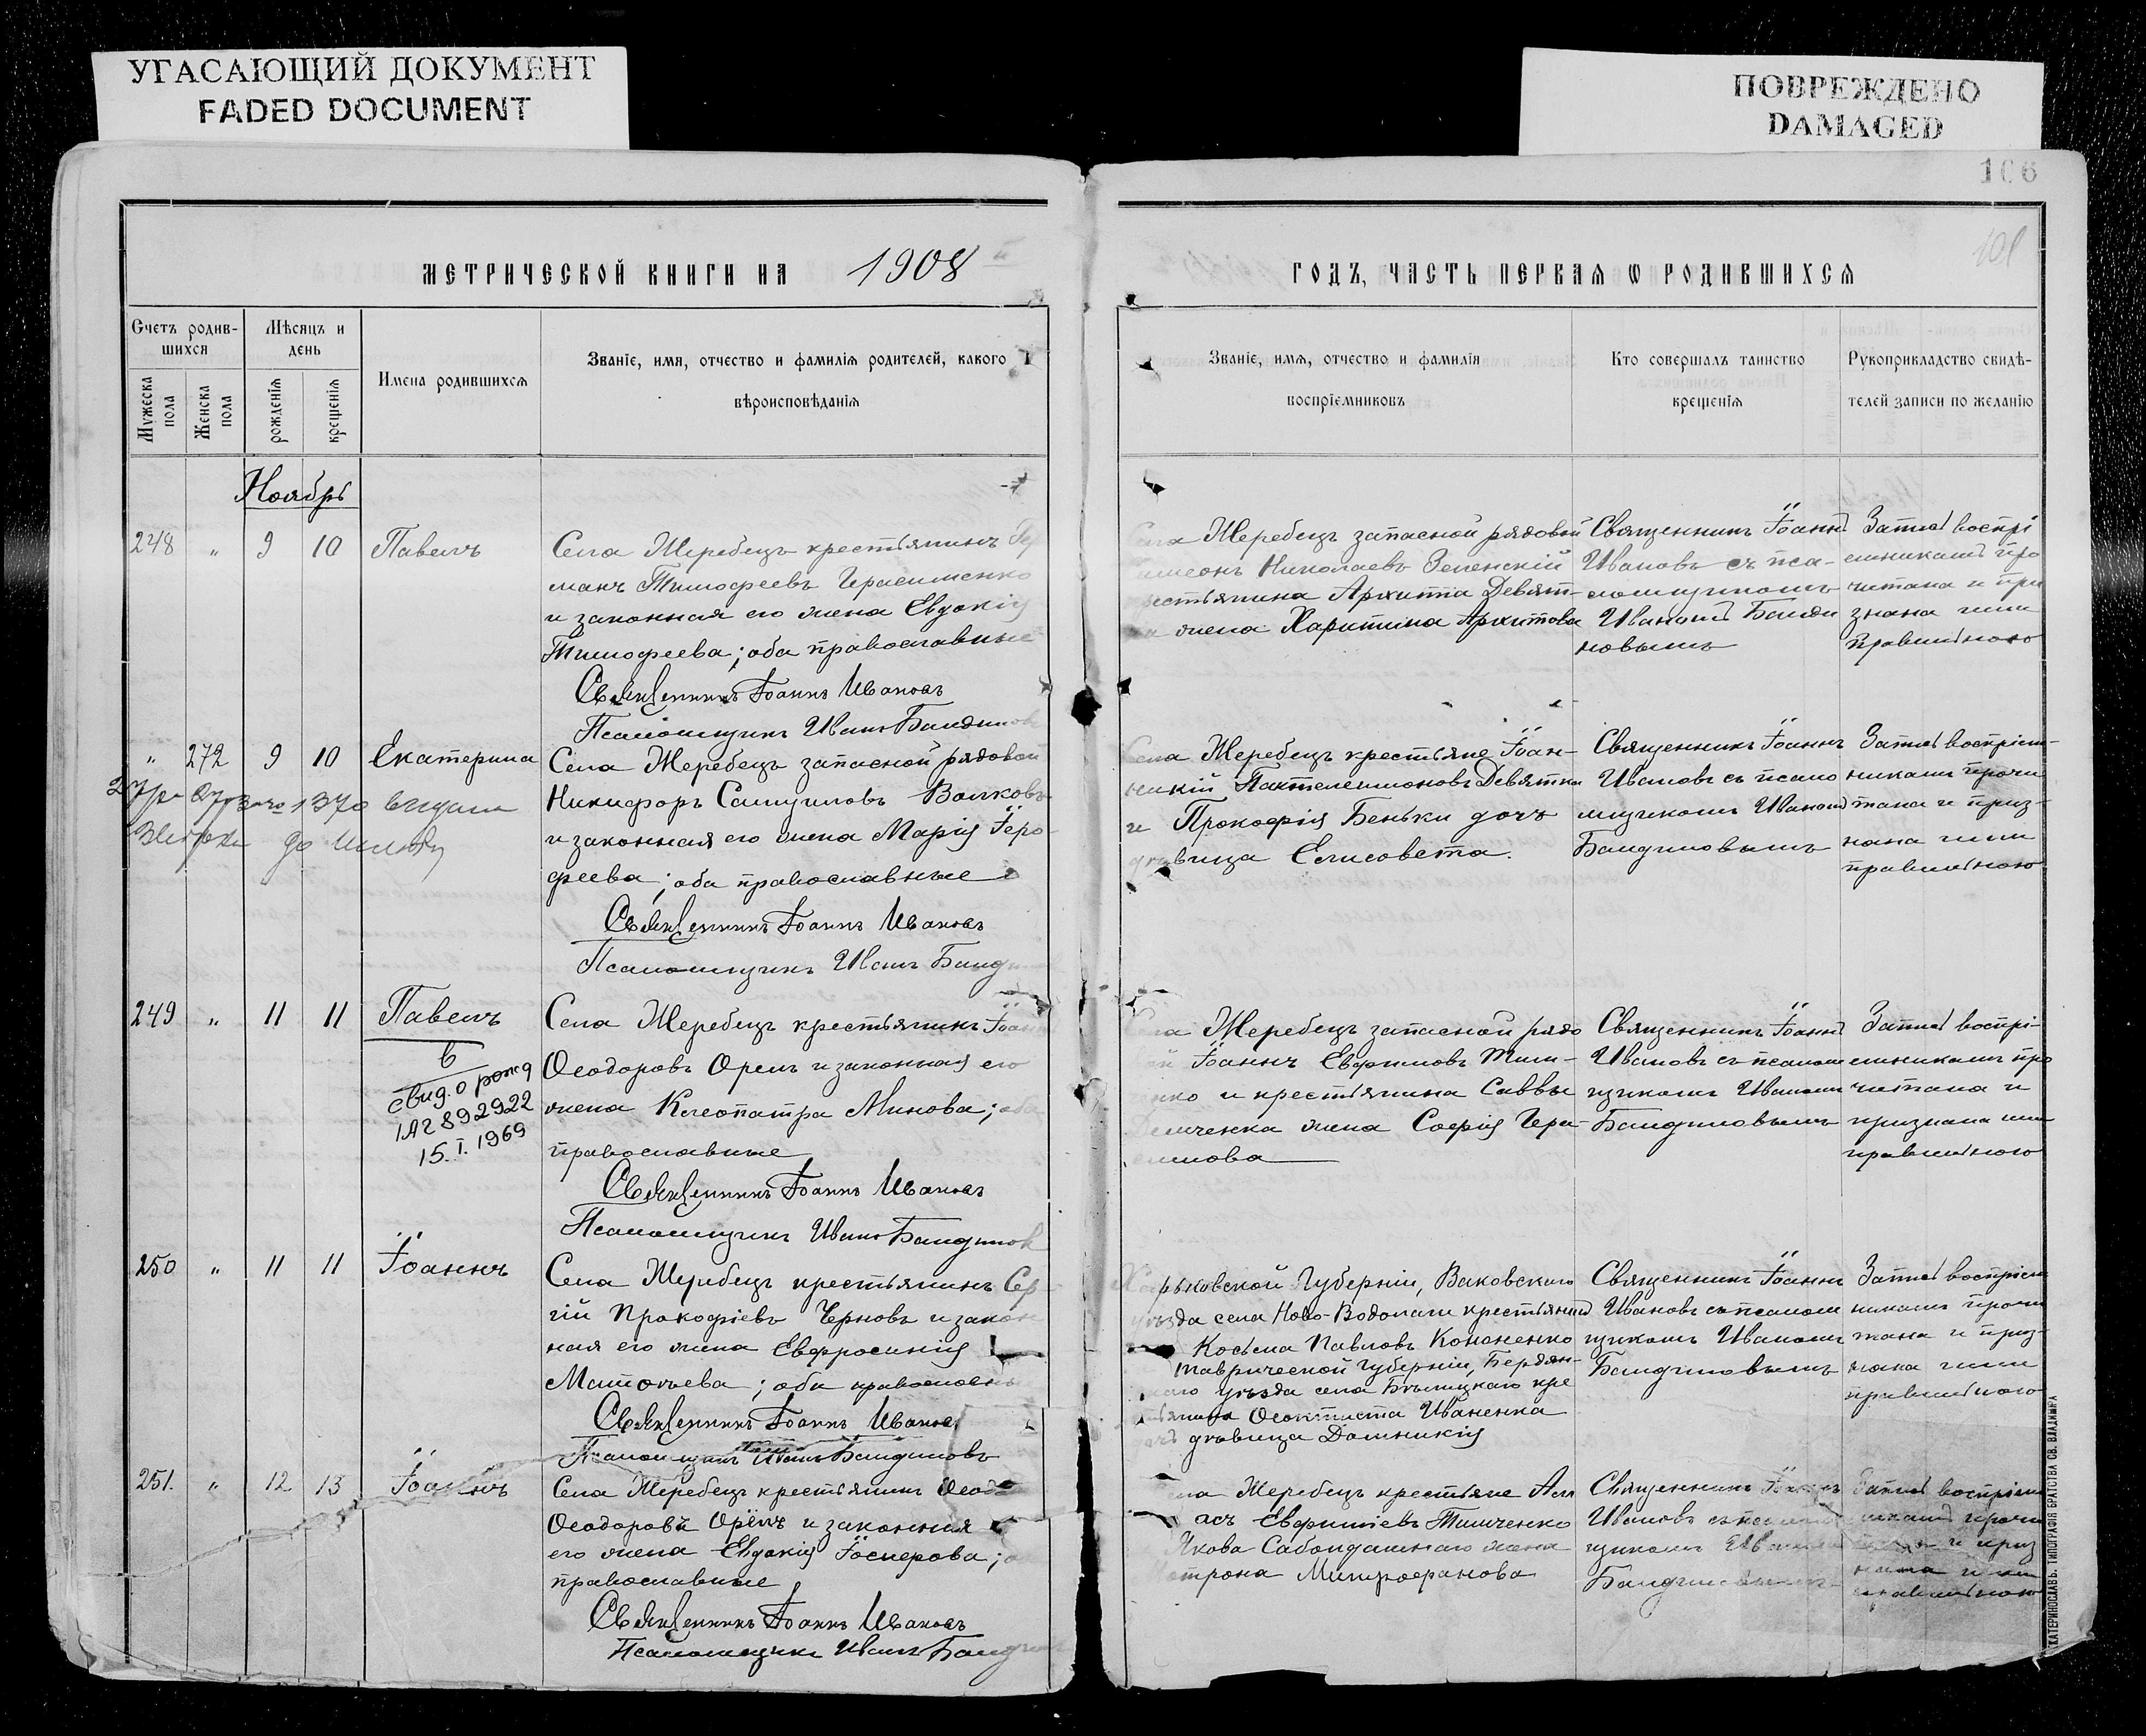 УГАСАЮЩИЙ ДОКУМЕНТ
FADED DOCUMENT
ПОВРЕЖДЕНО
DAMAGED
106
101
МЕТРИЧЕСКОЙ КНИГИ НА 1908
ГОДЪ, ЧАСТЬ ПЕРВАЯ Ѡ РОДИВШИХСЯ
Счетъ родив-
шихся
Мужеска пола
Женска пола
Мѣсяцъ и
день
рожденія
крещенія
Имена родившихся
Званіе, имя, отчество и фамилія родителей, какого
вѣроисповѣданія
Званіе, имя, отчество и фамилія
воспріемниковъ
Кто совершалъ таинство
крещенія
Рукоприкладство свидѣ-
телей записи по желанію
Ноябрь
248 " 9 10 Павелъ
Села Жеребецъ крестьянинъ Гер
манъ Тимофеевъ Герасименко
и законная его жена Евдокія
Тимофеева; оба православные
Священникъ Іоаннъ Ивановъ
Псаломщикъ Иванъ Бандиновъ
Села Жеребецъ запасной рядовой
Симеонъ Николаевъ Зеленскій
крестьянина Архиппа Девят-
жена Харитина Архипова
Священникъ Іоаннъ
Ивановъ съ пса-
ломщикомъ
Иваномъ Банди
новымъ
Запись воспрі
емниками про
читана и при
знана ими
правильною
" 272 9 10 Екатерина
Села Жеребецъ запасной рядовой
Никифоръ Самуиловъ Волковъ
и законная его жена Марія Іеро-
феева; оба православные
Священникъ Іоаннъ Ивановъ
Псаломщикъ Иванъ Банд
Села Жеребецъ крестьяне Іоан-
никій Пантелеимоновъ Девятка
и Прокофія Беньки дочь
дѣвица Елисавета.
Священникъ Іоаннъ
Ивановъ съ псало
мщикомъ Иваномъ
Бандиновымъ
Запись воспріем-
никами прочи
тана и приз-
нана ими
правильною
249 " 11 11 Павелъ
в
свид. о рожд
1А2 892922
15.I.1969
Села Жеребецъ крестьянинъ Іоаннъ
Ѳеодоровъ Орелъ и законная его
жена Клеопатра Минова; оба
православные
Священникъ Іоаннъ Ивановъ
Псаломщикъ Иванъ Бандинов
Жеребецъ запасной рядо
Іоаннъ Евфимовъ Тим-
нко и крестьянина Саввы
Демченка жена Софія Гера-
симова
Священникъ Іоаннъ
Ивановъ съ псалом
щикомъ Иваномъ
Бандиновымъ
Запись воспрі-
емниками про
читана и
признана ими
правильною
250 " 11 11 Іоаннъ
Села Жеребецъ крестьянинъ Сер
гій Прокофіевъ Черновъ и закон
ная его жена Евфросинія
Матѳѣева; оба православн
Священникъ Іоаннъ Ивановъ
Псаломщикъ Иванъ Бандиновъ
Харьковской Губерніи, Валковскаго
уѣзда села Ново-Водолаги крестьянинъ
Косьма Павловъ Кононенко
Таврической Губерніи, Бердян-
скаго уѣзда села кре
стьянина Ѳеоктиста Иваненка
дѣвица Домникія
Священникъ Іоаннъ
Ивановъ съ псалом
щикомъ Иваномъ
Бандиновымъ
Запись воспріем
никами прочи
тана и приз-
нана ими
правильною
251. " 12 13 Іоаннъ
Села Жеребецъ крестьянинъ Ѳеод
Ѳеодоровъ Орелъ и законная
его жена Евдокія Іосиерова;
православные
Священникъ Іоаннъ Ивановъ
Псаломщикъ Иванъ Банд
Жеребецъ крестьяне
Евфиміевъ Тимченко
Якова жена
Митрофанова
Священникъ Іоаннъ
Ивановъ съ псалом
щикомъ Иваномъ
Бандиновымъ
Запись воспріем
никами прочи
тана и приз
нана ими
правильною
ЕКАТЕРИНОСЛАВЪ. ТИПОГРАФІЯ БРАТСТВА СВ. ВЛАДИМІРА